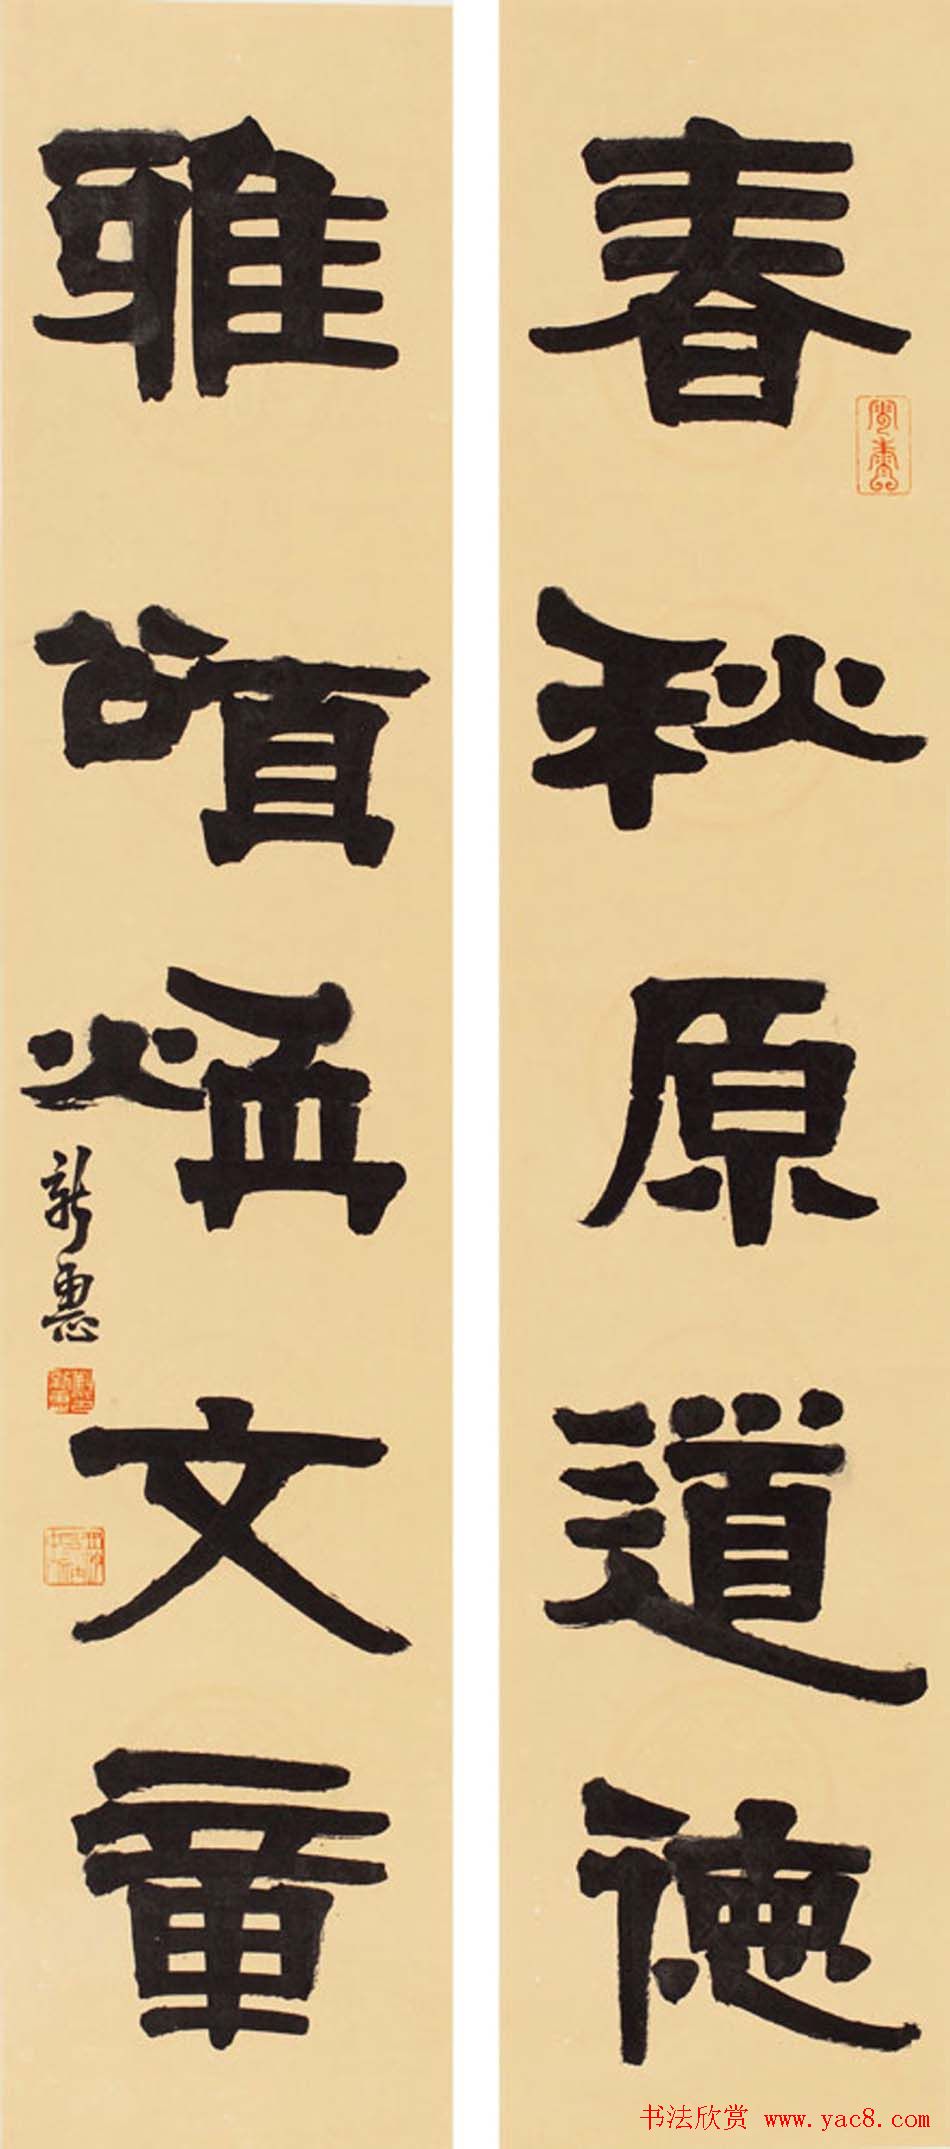 春秋原道德
雅頌煥文章
新惠
书法欣赏 www.yac8.com